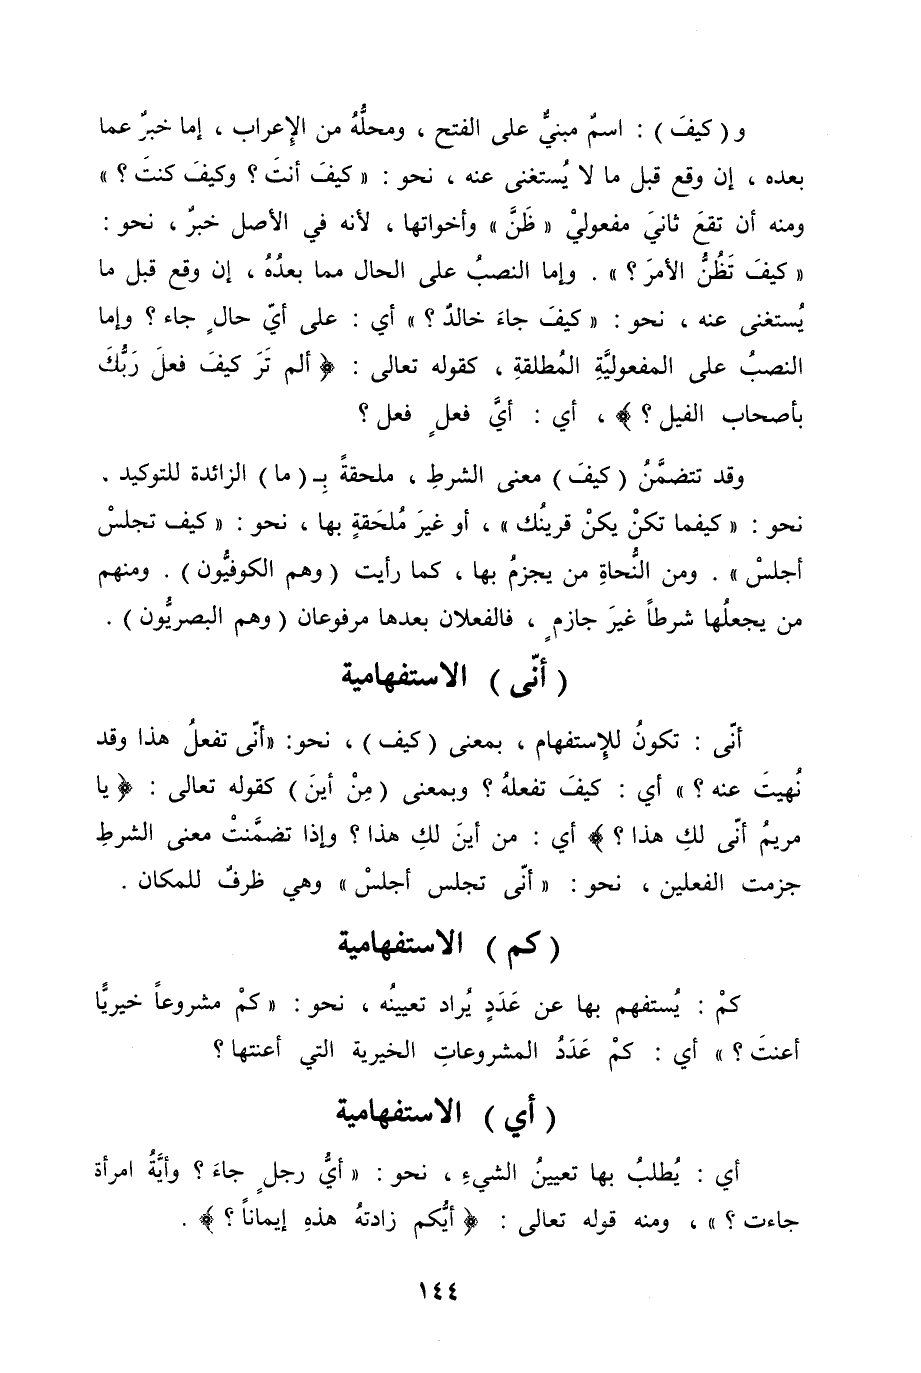 و ( كيفَ ) : اسمٌ مبنيٌّ على الفتح ، ومحلُّهُ من الإِعراب ، إما خبرٌ عما
بعده ، إن وقع قبل ما لا يُستغنى عنه ، نحو : « كيفَ أنتَ ؟ وكيفَ كنتَ ؟ »
ومنه أن تقعَ ثانيَ مفعوليْ « ظَنَّ » وأخواتها ، لأنه في الأصل خبرٌ ، نحو :
« كيفَ تَظُنُّ الأمرَ ؟ » . وإما النصبُ على الحال مما بعدُهُ ، إن وقع قبل ما
يُستغنى عنه ، نحو : « كيفَ جاءَ خالدٌ ؟ » أي : على أيّ حالٍ جاء ؟ وإما
النصبُ على المفعوليَّةِ المُطلقةِ ، كقوله تعالى : ﴿ ألم تَرَ كيفَ فعلَ رَبُّكَ
بأصحاب الفيل ؟ ﴾ ، أي : أيَّ فعلٍ فعل ؟
وقد تتضمَّنُ ( كيفَ ) معنى الشرطِ ، ملحقةً بِـ ( ما ) الزائدة للتوكيد .
نحو : « كيفما تكنْ يكنْ قرينُك » ، أو غيرَ مُلحَقةٍ بها ، نحو : « كيف تجلسْ
أجلسْ » . ومن النُّحاةِ من يجزمُ بها ، كما رأيت ( وهم الكوفيُّون ) . ومنهم
من يجعلُها شرطاً غيرَ جازمٍ ، فالفعلان بعدها مرفوعان ( وهم البصريُّون ) .
( أنّى ) الاستفهامية
أنّى : تكونُ للإِستفهامِ ، بمعنى ( كيف ) ، نحو: «أنّى تفعلُ هذا وقد
نُهيتَ عنه ؟ » أي : كيفَ تفعلهُ ؟ وبمعنى ( مِنْ أينَ ) كقوله تعالى : ﴿ يا
مريمُ أنّى لكِ هذا ؟ ﴾ أي : من أينَ لكِ هذا ؟ وإذا تضمَّنتْ معنى الشرطِ
جزمت الفعلين ، نحو : « أنّى تجلس أجلسْ » وهي ظرفٌ للمكان .
( كم ) الاستفهامية
كمْ : يُستفهم بها عن عَدَدٍ يُراد تعيينُه ، نحو : « كمْ مشروعاً خيريًّا
أعنتَ ؟ » أي : كمْ عَدَدُ المشروعاتِ الخيرية التي أعنتها ؟
( أي ) الاستفهامية
أي : يُطلبُ بها تعيينُ الشيءِ ، نحو : « أيُّ رجلٍ جاءَ ؟ وأيَّةُ امرأة
جاءت ؟ » ، ومنه قوله تعالى : ﴿ أيُّكم زادتهُ هذهِ إيماناً ؟ ﴾ .
١٤٤